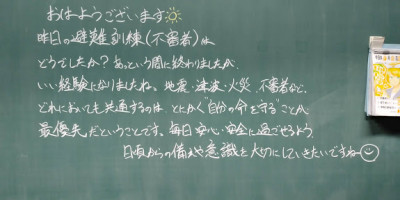 おはようございます
昨日の避難訓練(不審者)は
どうでしたか?あっという間に終わりましたが、
いい経験になりましたね。地震・津波・火災・不審者など、
どれにおいても共通するのは とにかく"自分の命を守る"ことが
最優先だということです。毎日 安心・安全に過ごせるよう
日頃からの備えや意識を大切にしていきたいですね